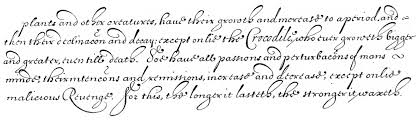 plants and other creatures, have their growth and increase to a period, and
then their declinacon and decay; except onlie the Crocodile, who ever groweth bigger
and greater, even till death. Soe have all passions and perturbacons of mans
minde, their intencons and remissions, increase and decrease, except onlie
malicious Revenge. For this, the longer it lasteth, the stronger it waxeth.